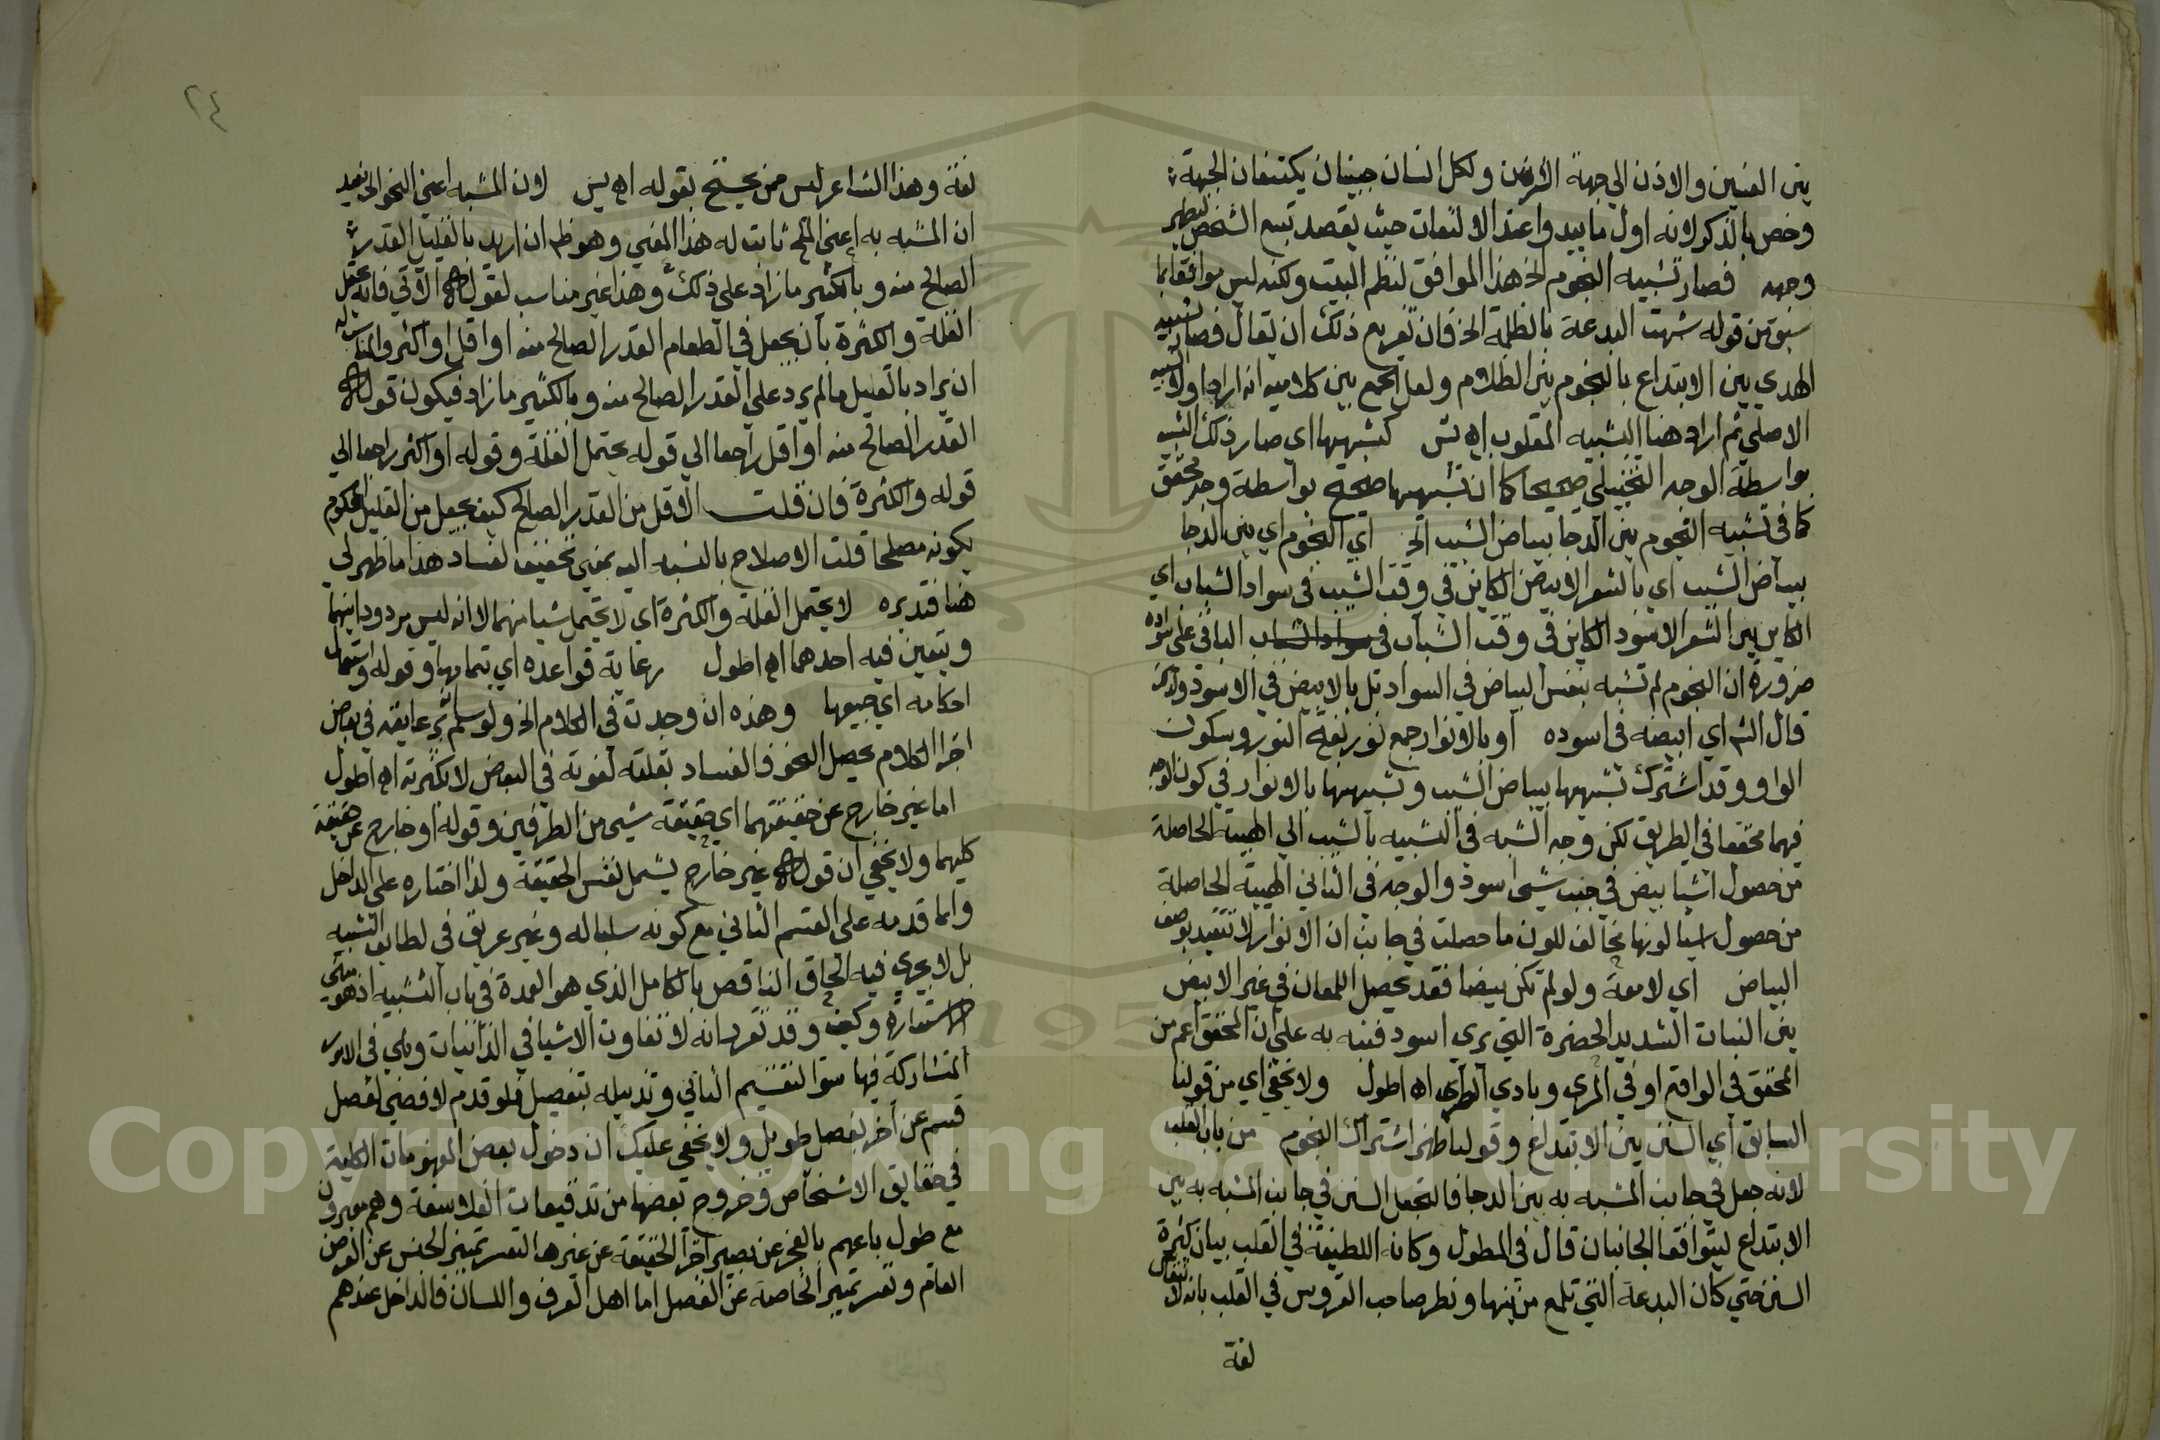 بين العينين والاذن الي جهة الراس ولكل انسان جبينان يكتنفان الجبهة
وخص بالذكر لانه اول ما يبدوا عند الالتفات حيث يقصد تبيع الشخص لينظر
وجهه فصار تشبيه النجوم الخ هذا الموافق لنظم البيت ولكنه ليس موافقا لما
سبق من قوله شبهت البدعة بالظلمة الخ فان تفريع ذلك ان يقال فصار تشبيه
الهدي بين الابتداع بالنجوم بين الظلام ولعل الجمع بين كلاميه انه اراد اولا التشبيه
الاصلي ثم اراد هنا التشبيه المقلوب اه يس كتشبيهها اي صار ذلك التشبيه
بواسطة الوجه التخييلي صحيحا كما ان تشبيهها صحيح بواسطة وجه محقق
كما في تشبيه النجوم بين الدجا ببياض الشيب الخ اي النجوم اي بين الدجا
ببياض الشيب اي بالشعر الابيض الكاين في وقت الشيب في سواد الشباب اي
الكاين بين الشعر الاسود الكاين في وقت الشباب في سواد الشباب الباقي علي سواده
ضرورة ان النجوم لم تشبه بنفس البياض في السواد بل بالابيض في الاسود ولذا
قال الش اي ابيضه في اسوده او بالانوار جمع نور بفتح النور وسكون
الواو وقد اشترك تشبيهها ببياض الشيب وتشبيهها بالانوار في كون الوجه
فيهما محققا في الطريق لكن وجه الشبه في التشبيه بالشيب الي الهيية الحاصلة
من حصول اشيا بيض في جنب شي اسود والوجه في الثاني الهيية الحاصلة
من حصول اشيا لونها مخالف للون ما حصلت في جانبه ان الانوار لا تتقيد بوصف
البياض اي لامعة ولو لم تكن بيضا فقد يحصل اللمعان في غير الابيض
بين النبات الشديد الخضرة التي يري اسود فنبه به علي ان المحقق اعم من
المحقق في الواقع او في المرى وبادي الراى اه اطول ولا يخفي اي من قولنا
السابق اي السنن بين الابتداع وقولنا ظهر اشتراك النجوم من باب القلب
لانه جعل في جانب المشبه به بين الدجا فالنجعل السنن في جانب المشبه به بين
الابتداع ليتوافقا الجانبان قال في المطول وكانه اللطيفة في القلب بيان كثرة
السنن حتي كان البدعة التي تلمع من بينها ونظر صاحب العروس في القلب بانه لا يقال
لغة
٢٤
لغة وهذا الشاعر ليس ممن يحتج بقوله اه يس لان المشبه اعني النحو الخ يفيد
ان المشبه به اعني الملح ثابت له هذا المعني وهو ظ ان اريد بالقليل القدر
الصالح منه وبالكثير ما زاد علي ذلك وهذا غير مناسب لقول المص الاتي فانه يحتمل
القلة والكثرة بان يجعل في الطعام القدر الصالح منه او اقل او اكثر والمناسب له
ان يراد بالقليل ما لم يزد علي القدر الصالح منه وبالكثير ما زاد فيكون قول المص
القدر الصالح منه او اقل راجعا الي قوله يحتمل القلة وقوله او اكثر راجعا الي
قوله والكثرة فان قلت الاقل من القدر الصالح كيف يجعل من القليل المحكوم
بكونه مصلحا قلت الاصلاح بالنسبه اليه بمعني تخفيف الفساد هذا ما ظهر لي
هنا فتدبره لا يحتمل القلة والكثرة اي لا يحتمل شيا منهما لا انه ليس مرددا بينهما
ويتعين فيه احدهما اه اطول رعاية قواعده اي بتمامها وقوله واستعمال
احكامه اي جميعها وهذه ان وجدت في الكلام الخ ولو سلم ثم رعايته في بعض
اجزا الكلام يحصل النحو والفساد بعلقه لفوته في البعض لا لكثرته اه اطول
اما غير خارج عن حقيقتهما اي حقيقة شي من الطرفين وقوله او خارج عن حقيقة
كليهما ولا يخفي ان قول المص غير خارج يشمل نفس الحقيقة ولذا اختاره علي الداخل
وانما قدمه علي القسم الثاني مع كونه سلبا له وغير عريق في لطايف التشبيه
بل لا يجري فيه الحاق الناقص بالكامل الذي هو العمدة في باب التشبيه اذ هو مبني
الاستعارة وكيف وقد تقرر انه لا تفاوت الاشيا في الذاتيات وياتي في الامور
المتشاركة فيها سوا لتقسيم الثاني وتذييله بتفصيل فلو قدم لافضي لفصل
قسم عن اخر بفصل طويل ولا يخفي عليك ان دخول بعض المفهومات الكلية
في حقايق الاشخاص وخروج بعضها من تدقيقات الفلاسفة وهم معترفون
مع طول باعهم بالعجز عن بصير اجزا الحقيقة عن غيرها لتعسر تمييز الجنس عن العرض
العام وتعسر تمييز الخاصة عن الفصل اما اهل العرف واللسان فالداخل عندهم